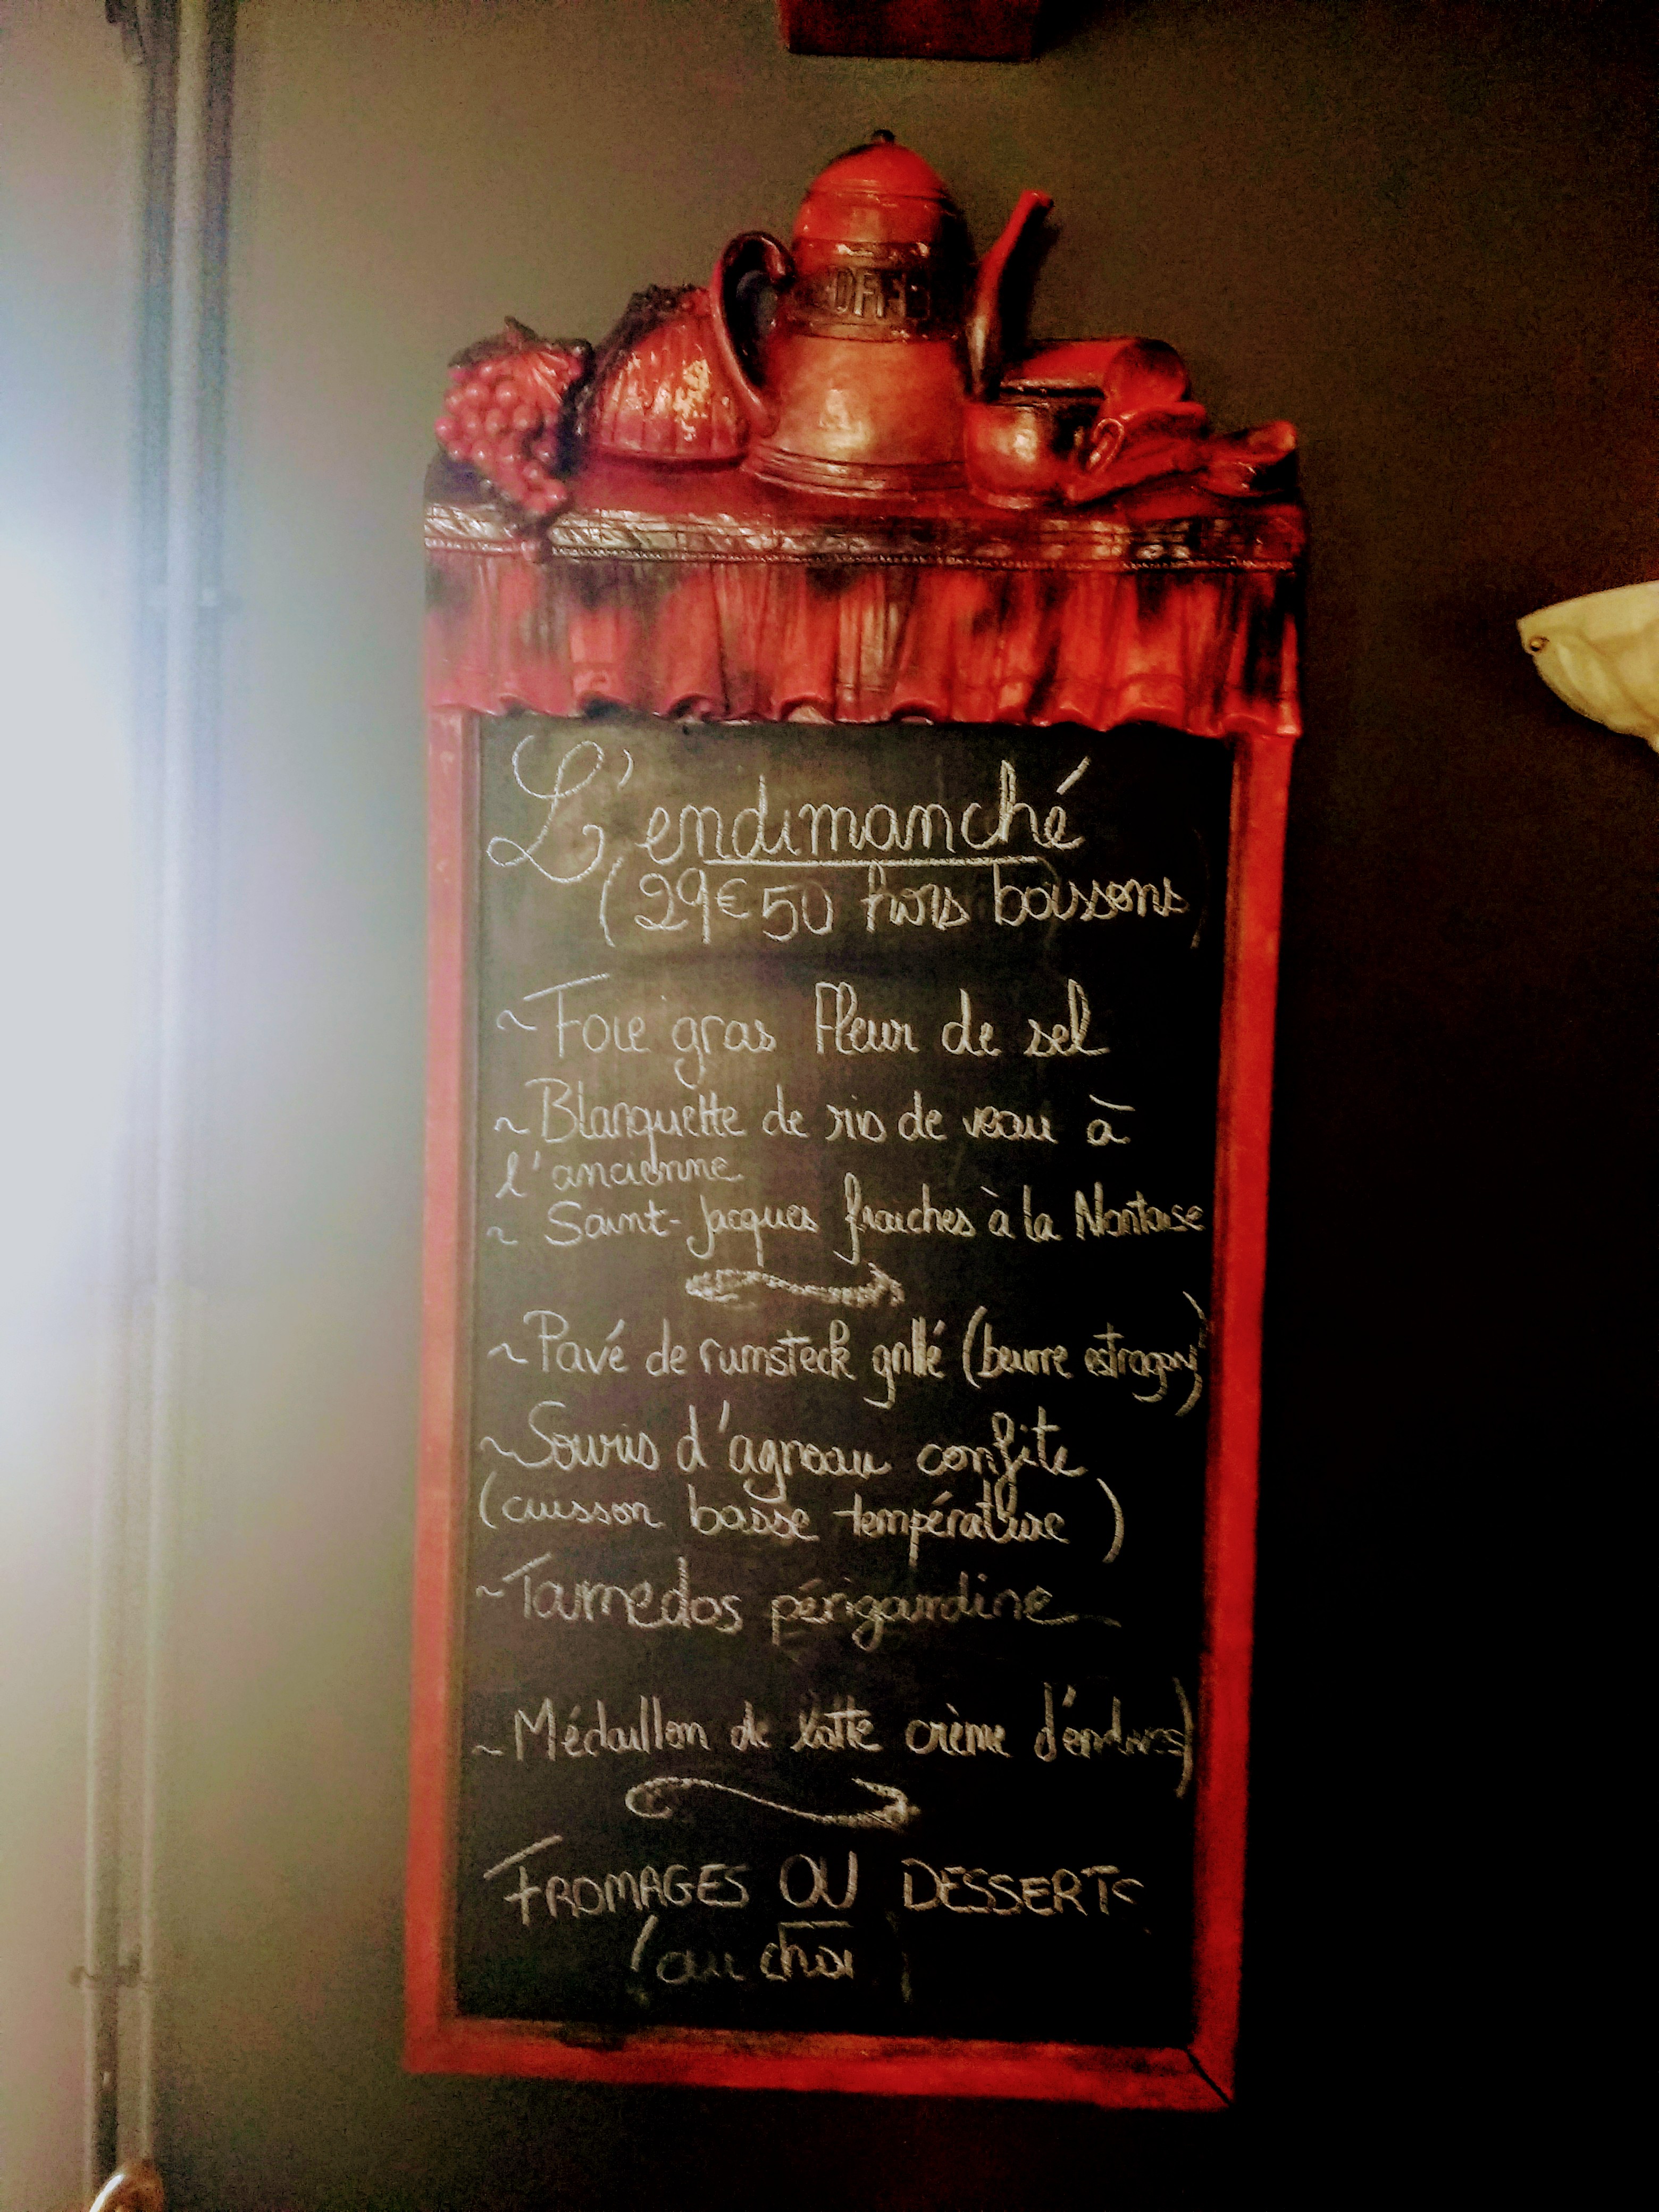 COFFEE
L'endimanché
(29€50 hors boissons)
~ Foie gras Fleur de sel
~ Blanquette de ris de veau à
l'ancienne
~ Saint-Jacques fraiches à la Nantaise
~ Pavé de rumsteck grillé (beurre estragon)
~ Souris d'agneau confite
(cuisson basse température)
~ Tournedos périgourdine
~ Médaillon de lotte crème d'endives)
FROMAGES OU DESSERTS
(au choix)